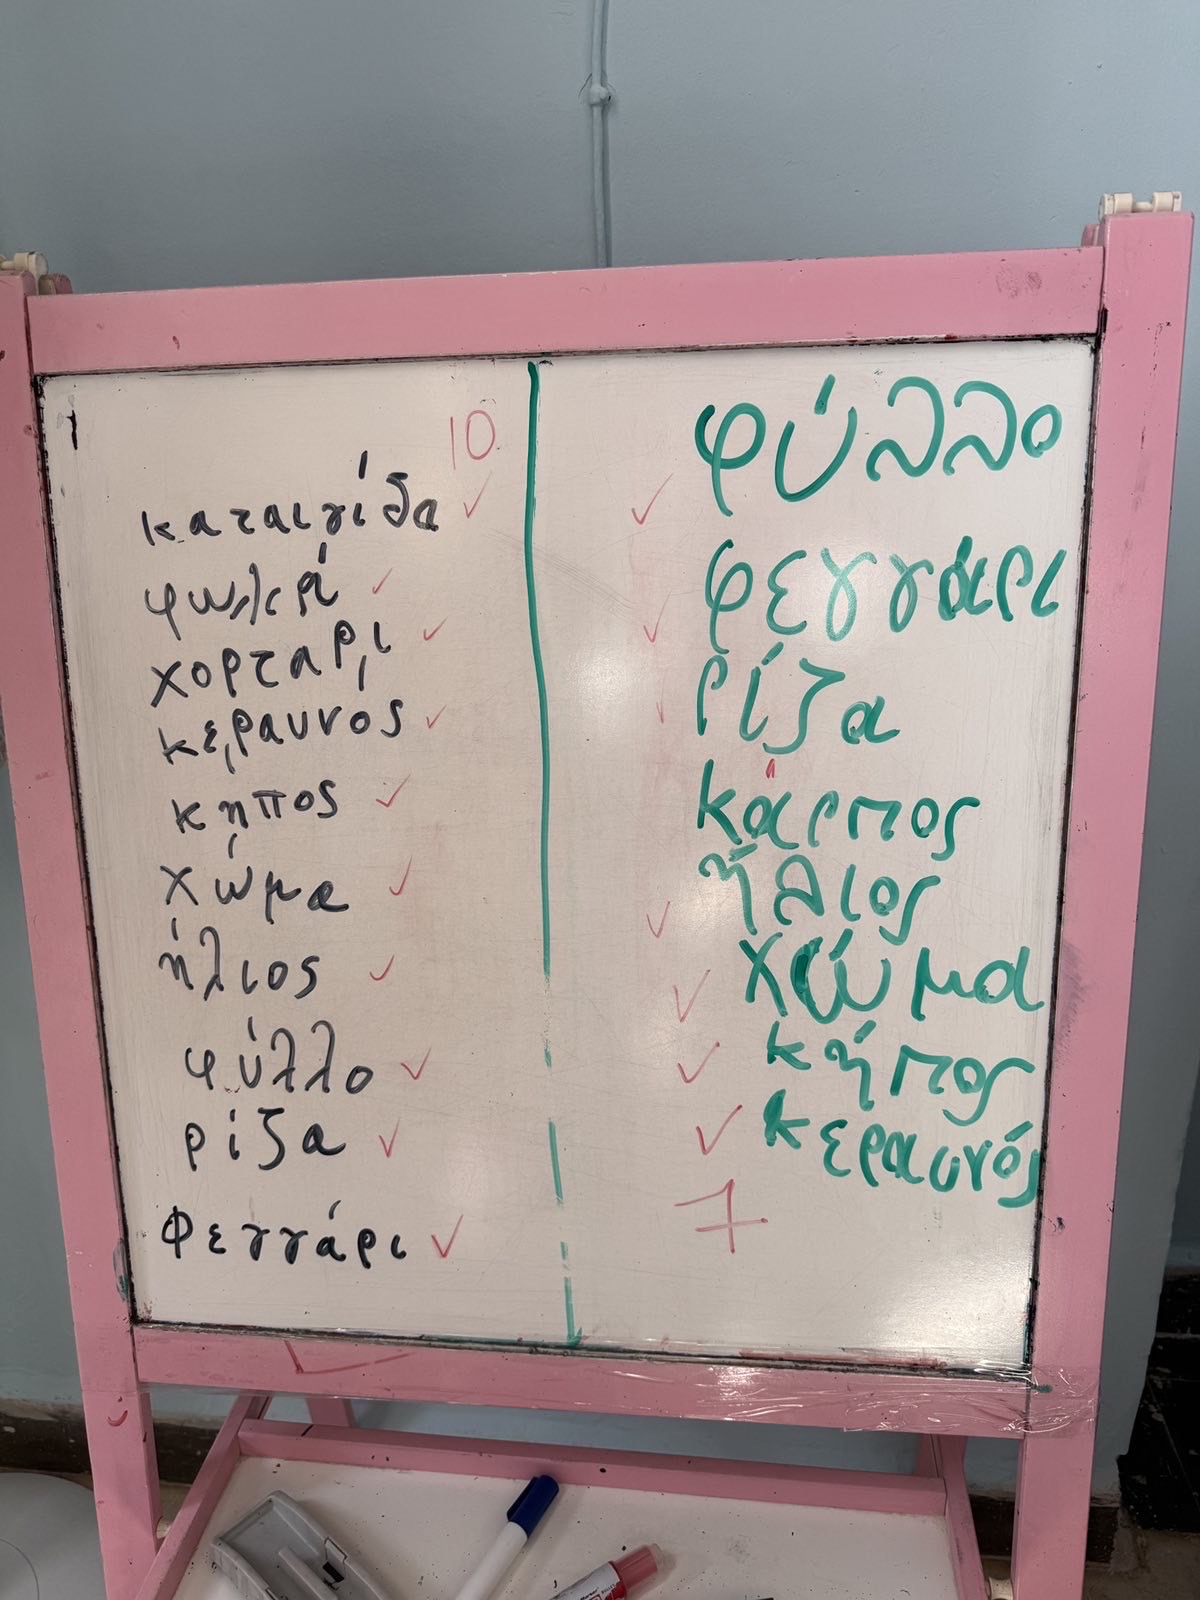 10
καταιγίδα
φωλιά
χορταρι
κεραυνος
κηπος
χώμα
ήλιος
φύλλο
ρίζα
Φεγγάρι
φύλλο
φεγγάρι
ρίζα
κάρπος
ήλιος
χώμα
κήπος
κεραυνός
7